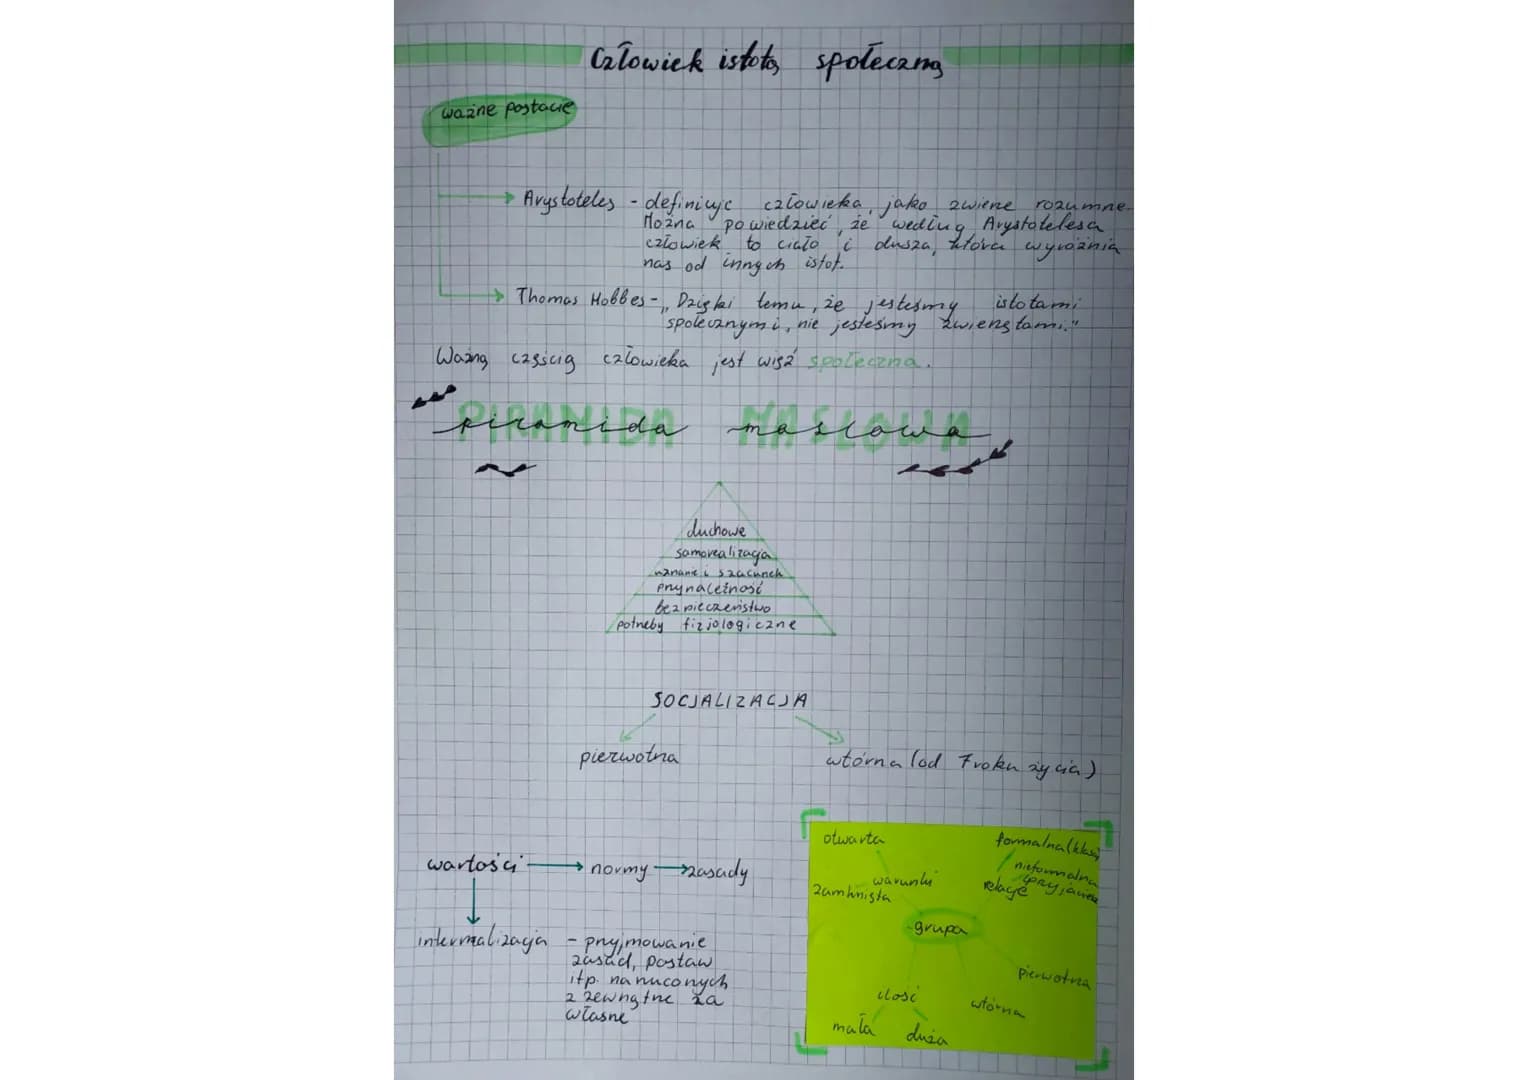 Człowiek istotą społeczną
ważne postacie
Arystoteles - definiuje człowieka, jako zwierzę rozumne.
Można powiedzieć, że według Arystotelesa
człowiek to ciało i dusza, która wyróżnia
nas od innych istot.
Thomas Hobbes - „Dzięki temu, że jesteśmy istotami
społecznymi, nie jesteśmy zwierzętami."
Ważną częścią człowieka jest więź społeczna.
PIRAMIDA MASŁOWA
piramida masłowa
duchowe
samorealizacja
uznanie i szacunek
przynależność
bezpieczeństwo
potrzeby fizjologiczne
SOCJALIZACJA
pierwotna
wtórna (od 7 roku życia)
wartości → normy → zasady
internalizacja - przyjmowanie
zasad, postaw
itp. narzuconych
z zewnątrz za
własne
otwarta
formalna (klasa)
nieformalna
przyjaciele
warunki
relacje
zamknięta
grupa
pierwotna
ilość
wtórna
mała duża